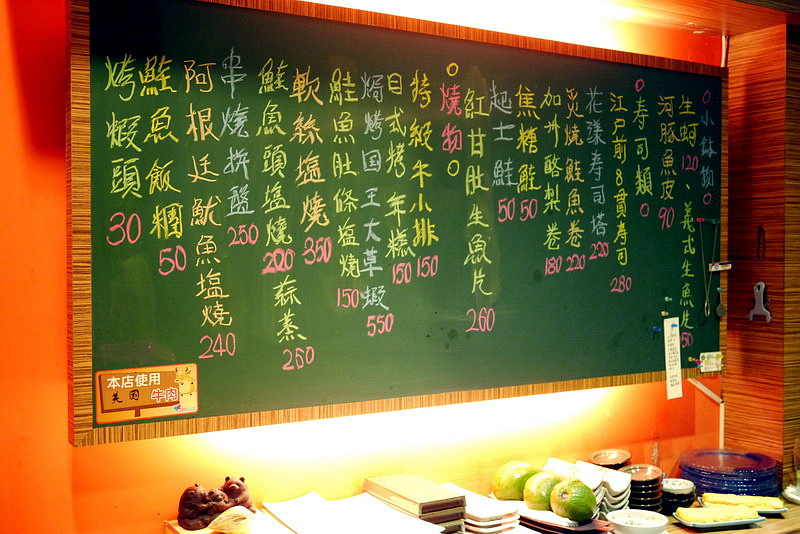 ○小鉢物○
生蚵120、義式生魚片
河豚魚皮 90
○寿司類○
江戶前8貫寿司 280
花漾寿司塔 220
炙燒鮭魚卷 220
加州酪梨卷 180
焦糖鮭 50
起士鮭 50
紅甘肚生魚片 260
○燒物○
特級牛小排 150
日式烤年糕 150
焗烤国王大草蝦 550
鮭魚肚條塩燒 150
軟絲塩燒 350
鮭魚頭塩燒 220 蒜蒸 250
串燒拼盤 250
阿根廷魷魚塩燒 240
鮭魚飯糰 50
烤蝦頭 30
本店使用
美国牛肉